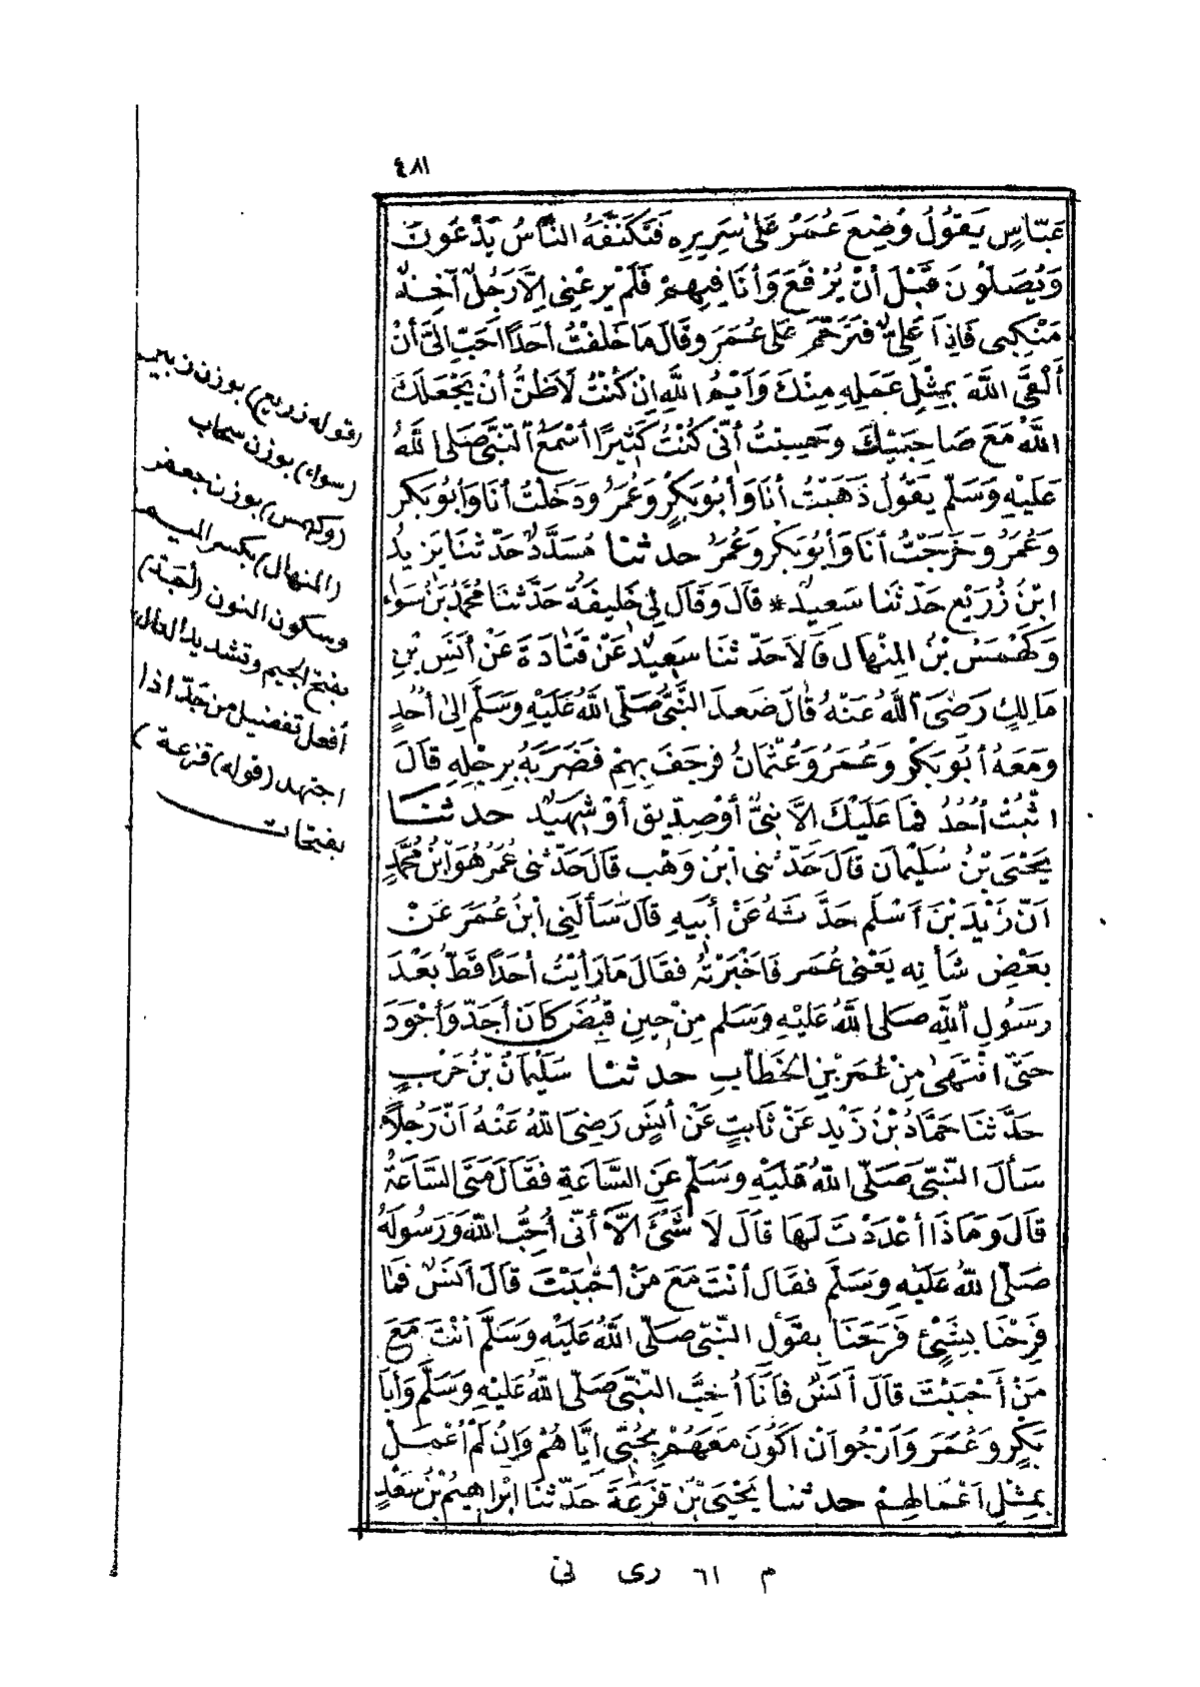 ٤٨١
عَبَّاسٍ يَقُولُ وُضِعَ عُمَرُ عَلَى سَرِيرِهِ فَتَكَنَّفَهُ النَّاسُ يَدْعُونَ
وَيُصَلُّونَ قَبْلَ أَنْ يُرْفَعَ وَأَنَا فِيهِمْ فَلَمْ يَرُعْنِى إِلَّا رَجُلٌ آخِذٌ
مَنْكِبِى فَإِذَا عَلِىٌّ فَتَرَحَّمَ عَلَى عُمَرَ وَقَالَ مَا خَلَّفْتُ أَحَدًا أَحَبَّ إِلَىَّ أَنْ
أَلْقَى اللَّهَ بِمِثْلِ عَمَلِهِ مِنْكَ وَايْمُ اللَّهِ إِنْ كُنْتُ لَأَظُنُّ أَنْ يَجْعَلَكَ
اللَّهُ مَعَ صَاحِبَيْكَ وَحَسِبْتُ أَنِّى كُنْتُ كَثِيرًا أَسْمَعُ النَّبِىَّ صَلَّى اللَّهُ
عَلَيْهِ وَسَلَّمَ يَقُولُ ذَهَبْتُ أَنَا وَأَبُو بَكْرٍ وَعُمَرُ وَدَخَلْتُ أَنَا وَأَبُو بَكْرٍ
وَعُمَرُ وَخَرَجْتُ أَنَا وَأَبُو بَكْرٍ وَعُمَرُ حدثنا مُسَدَّدٌ حَدَّثَنَا يَزِيدُ
ابْنُ زُرَيْعٍ حَدَّثَنَا سَعِيدٌ * قَالَ وَقَالَ لِى خَلِيفَةُ حَدَّثَنَا مُحَمَّدُ بْنُ سَوَاءٍ
وَكَهْمَسُ بْنُ الْمِنْهَالِ قَالَا حَدَّثَنَا سَعِيدٌ عَنْ قَتَادَةَ عَنْ أَنَسِ بْنِ
مَالِكٍ رَضِىَ اللَّهُ عَنْهُ قَالَ صَعِدَ النَّبِىُّ صَلَّى اللَّهُ عَلَيْهِ وَسَلَّمَ إِلَى أُحُدٍ
وَمَعَهُ أَبُو بَكْرٍ وَعُمَرُ وَعُثْمَانُ فَرَجَفَ بِهِمْ فَضَرَبَهُ بِرِجْلِهِ قَالَ
اثْبُتْ أُحُدُ فَمَا عَلَيْكَ إِلَّا نَبِىٌّ أَوْ صِدِّيقٌ أَوْ شَهِيدٌ حدثنا
يَحْيَى بْنُ سُلَيْمَانَ قَالَ حَدَّثَنِى ابْنُ وَهْبٍ قَالَ حَدَّثَنِى عُمَرُ هُوَ ابْنُ مُحَمَّدٍ
أَنَّ زَيْدَ بْنَ أَسْلَمَ حَدَّثَهُ عَنْ أَبِيهِ قَالَ سَأَلَنِى ابْنُ عُمَرَ عَنْ
بَعْضِ شَأْنِهِ يَعْنِى عُمَرَ فَأَخْبَرْتُهُ فَقَالَ مَا رَأَيْتُ أَحَدًا قَطُّ بَعْدَ
رَسُولِ اللَّهِ صَلَّى اللَّهُ عَلَيْهِ وَسَلَّمَ مِنْ حِينِ قُبِضَ كَانَ أَجَدَّ وَأَجْوَدَ
حَتَّى انْتَهَى مِنْ عُمَرَ بْنِ الْخَطَّابِ حدثنا سُلَيْمَانُ بْنُ حَرْبٍ
حَدَّثَنَا حَمَّادُ بْنُ زَيْدٍ عَنْ ثَابِتٍ عَنْ أَنَسٍ رَضِىَ اللَّهُ عَنْهُ أَنَّ رَجُلًا
سَأَلَ النَّبِىَّ صَلَّى اللَّهُ عَلَيْهِ وَسَلَّمَ عَنِ السَّاعَةِ فَقَالَ مَتَى السَّاعَةُ
قَالَ وَمَاذَا أَعْدَدْتَ لَهَا قَالَ لَا شَىْءَ إِلَّا أَنِّى أُحِبُّ اللَّهَ وَرَسُولَهُ
صَلَّى اللَّهُ عَلَيْهِ وَسَلَّمَ فَقَالَ أَنْتَ مَعَ مَنْ أَحْبَبْتَ قَالَ أَنَسٌ فَمَا
فَرِحْنَا بِشَىْءٍ فَرَحَنَا بِقَوْلِ النَّبِىِّ صَلَّى اللَّهُ عَلَيْهِ وَسَلَّمَ أَنْتَ مَعَ
مَنْ أَحْبَبْتَ قَالَ أَنَسٌ فَأَنَا أُحِبُّ النَّبِىَّ صَلَّى اللَّهُ عَلَيْهِ وَسَلَّمَ وَأَبَا
بَكْرٍ وَعُمَرَ وَأَرْجُو أَنْ أَكُونَ مَعَهُمْ بِحُبِّى إِيَّاهُمْ وَإِنْ لَمْ أَعْمَلْ
بِمِثْلِ أَعْمَالِهِمْ حدثنا يَحْيَى بْنُ قَزَعَةَ حَدَّثَنَا إِبْرَاهِيمُ بْنُ سَعْدٍ
(قوله زريع) بوزن زبير
(سواء) بوزن سحاب
(وكهمس) بوزن جعفر
(المنهال) بكسر الميم
وسكون النون (أجد)
بفتح الجيم وتشديد الدال
أفعل تفضيل من جدّ اذا
اجتهد (قوله) (قزعة)
بفتحات
م ٦١ رى نى